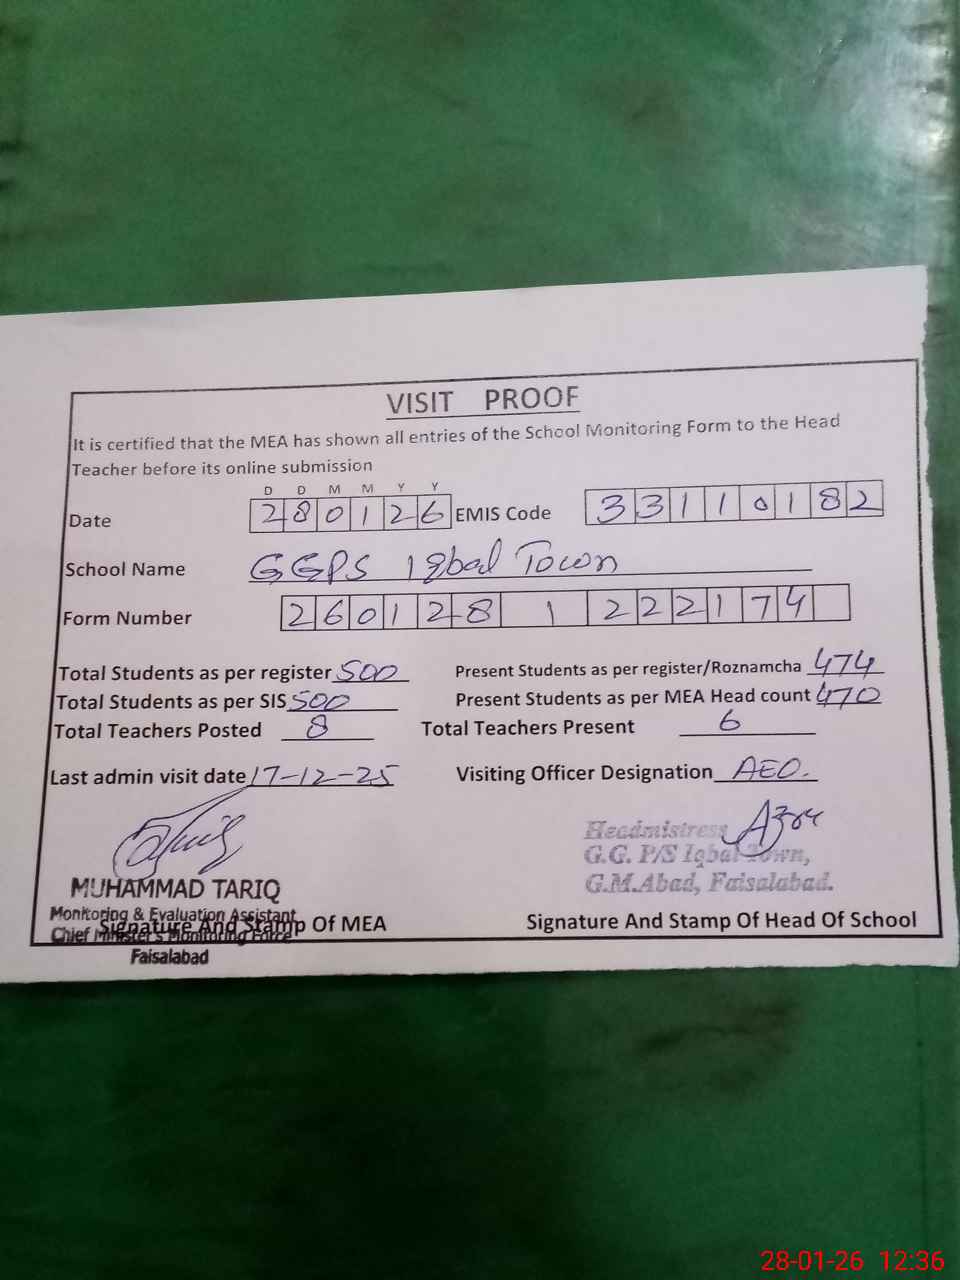 VISIT PROOF
It is certified that the MEA has shown all entries of the School Monitoring Form to the Head
Teacher before its online submission
D D M M Y Y
Date 280126 EMIS Code 33110182
School Name GGPS Iqbal Town
Form Number 260128 1 222174
Total Students as per register 500 Present Students as per register/Roznamcha 474
Total Students as per SIS 500 Present Students as per MEA Head count 470
Total Teachers Posted 8 Total Teachers Present 6
Last admin visit date 17-12-25 Visiting Officer Designation AEO.
Headmistress
G.G. P/S Iqbal Town,
G.M.Abad, Faisalabad.
MUHAMMAD TARIQ
Monitoring & Evaluation Assistant
Chief Minister's Monitoring Force
Faisalabad
Signature And Stamp Of MEA Signature And Stamp Of Head Of School
28-01-26 12:36